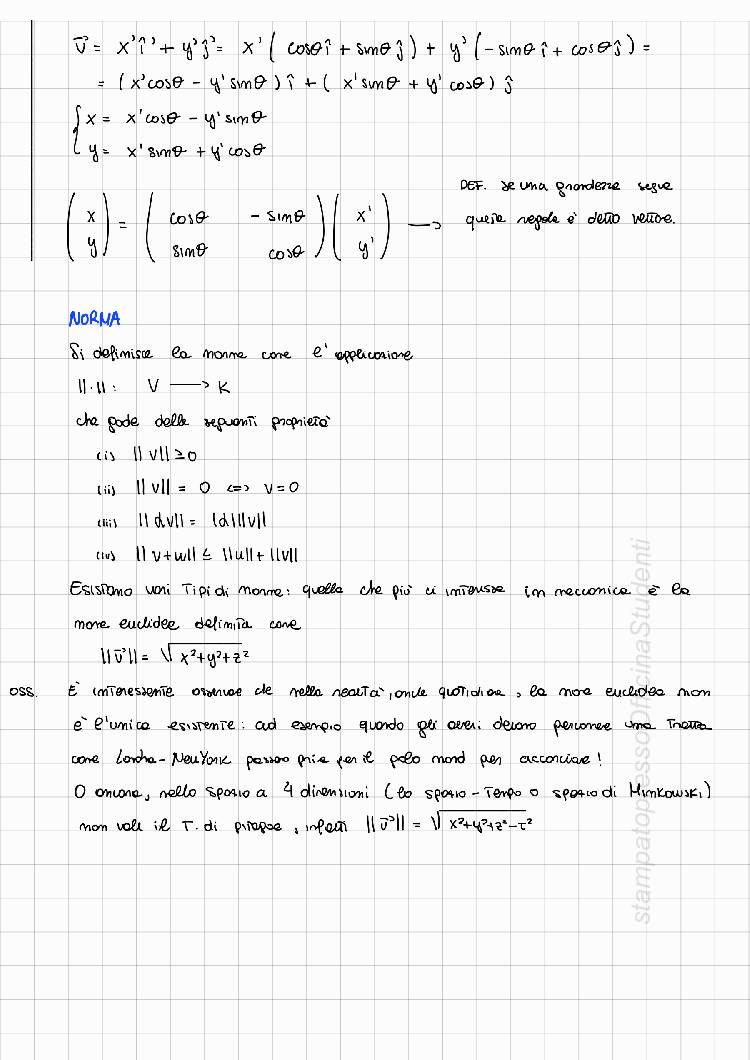 v⃗ = x'î' + y'ĵ' = x' ( cosθ î + sinθ ĵ ) + y' ( -sinθ î + cosθ ĵ ) =
= ( x'cosθ - y'sinθ ) î + ( x'sinθ + y'cosθ ) ĵ
{ x = x'cosθ - y'sinθ
y = x'sinθ + y'cosθ
( x y ) = ( cosθ - sinθ sinθ cosθ ) ( x' y' ) → DEF. se una grandezza segue
queste regole è detto vettore.
NORMA
Si definisce la norma come l'applicazione
||·||: V → K
che gode delle seguenti proprietà
(i) ||v|| ≥ 0
(ii) ||v|| = 0 <=> v = 0
(iii) ||αv|| = |α| ||v||
(iv) ||v+w|| ≤ ||u|| + ||v||
Esistono vari tipi di norme: quella che più ci interessa in meccanica è la
norme euclidea definita come
||v⃗|| = √x²+y²+z²
OSS. È interessante osservare che nella realtà, quotidiana, la norma euclidea non
è l'unica esistente: ad esempio quando gli aerei devono percorrere una tratta
come Londra - New York passano prima per il polo nord per accorciare!
O ancora, nello spazio a 4 dimensioni (lo spazio-tempo o spazio di Minkowski)
non vale il T. di pitagora, infatti ||v⃗|| = √x²+y²+z²-t²
stampatopressoOfficinaStudenti